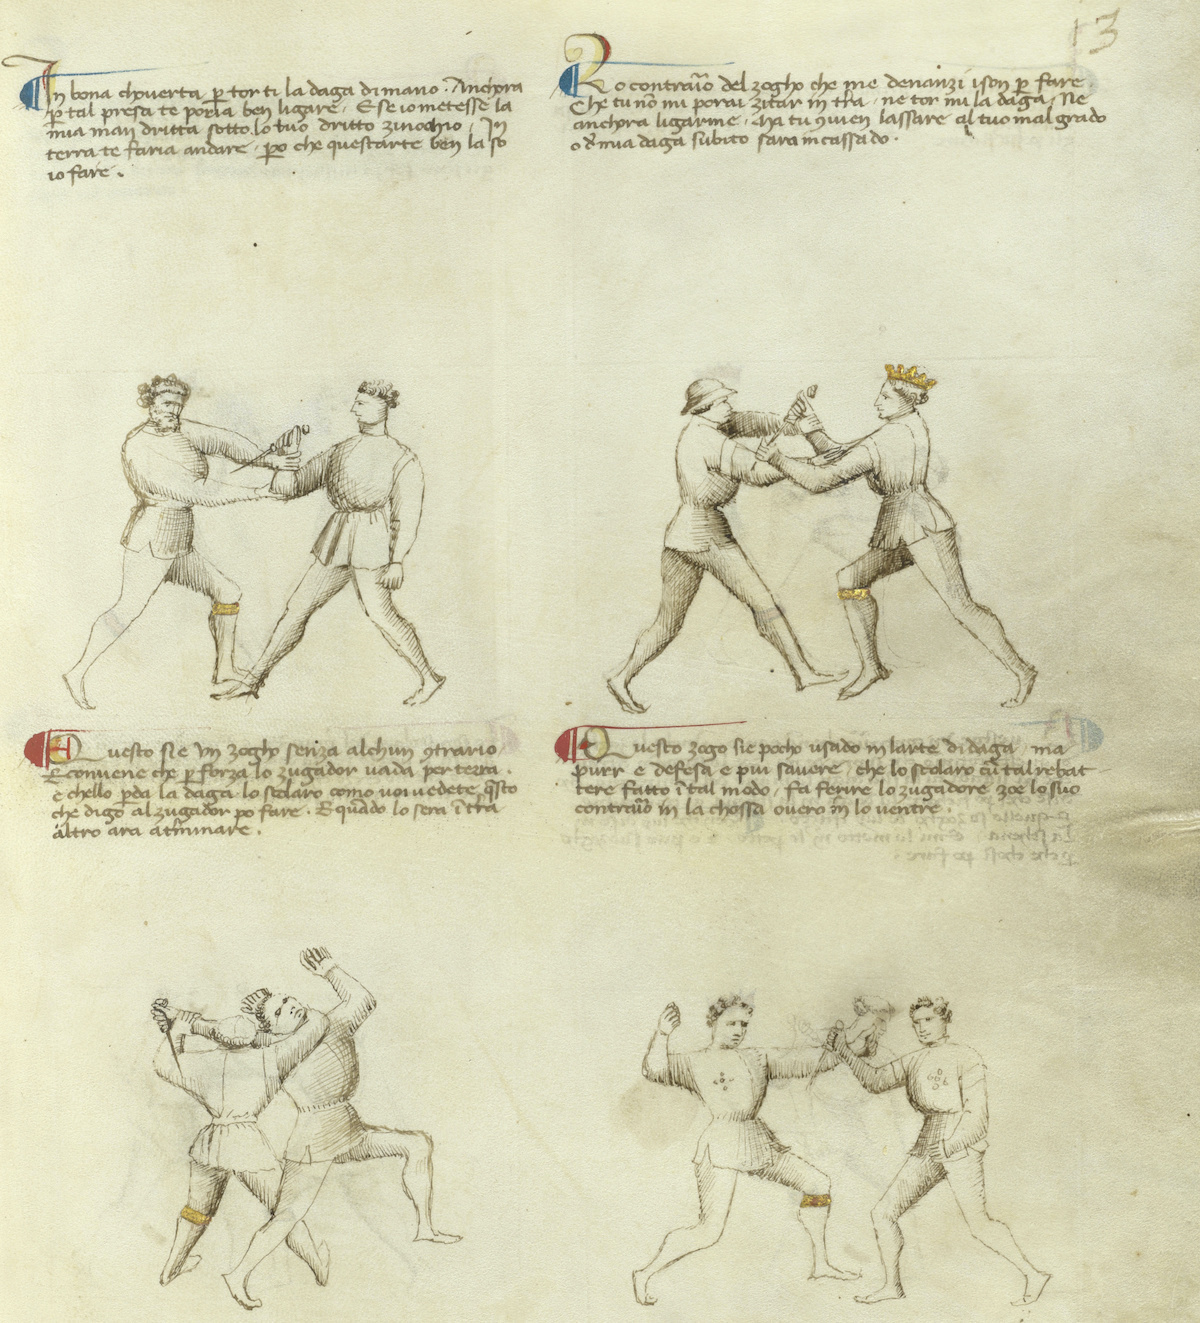 13
In bona choverta p tor ti la daga di mano. Anchora
p tal presa te poria ben ligare. E se io metesse la
mia man dritta sotto lo tuo dritto zinochio, In
terra te faria andare, po che quest arte ben la so
io fare.
Lo contrario del zogho che me denanzi ison p fare
Che tu no mi porai zitar in tra, ne tor mi la daga, Ne
anchora ligarme, Ma tu convien lassare al tuo mal grado
o d mia daga subito sara incassado.
Questo si e un zogho senza alchun contrario
E conviene che p forza lo zugador vada per terra.
e chello pda la daga lo scolaro como voi vedete, qsto
che digo al zugador po fare. E quado lo sera i tra
altro ara a tminare.
Questo zogo sie pocho usado in larte di daga, ma
purr e defesa e piu savere, che lo scolaro cu tal rebat
tere fatto i tal modo, fa ferire lo zugadore zoe lo suo
contrario in la chossa overo in lo ventre.